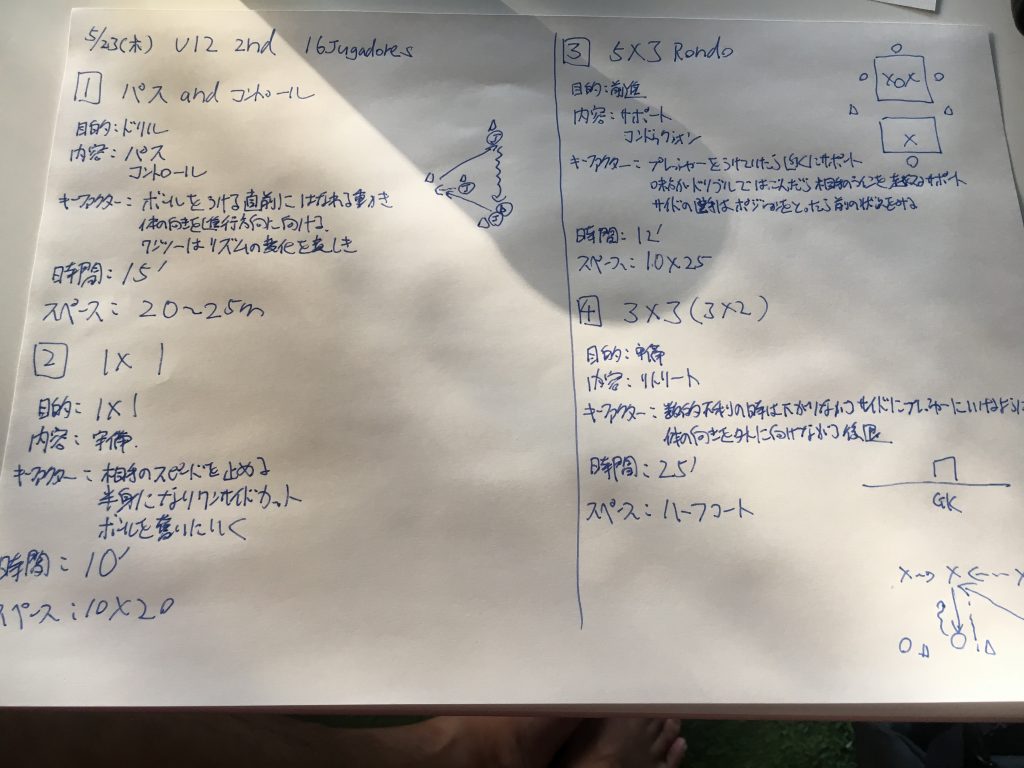 5/23(木) U12 2nd 16Jugadores
1 パス and コントロール
目的:ドリル
内容:パス
コントロール
キーファクター:ボールをうける直前にはなれる動き
体の向きを進行方向に向ける
ワンツーはリズムの変化を
時間:15'
スペース:20〜25m
2 1×1
目的:1×1
内容:守備.
キーファクター:相手のスピードを止める
半身になりワンサイドカット
ボールを奪いにいく
時間:10'
スペース:10×20
3 5×3 Rondo
目的:前進
内容:サポート
コンドゥクシオン
キーファクター:プレッシャーをうけていたら近くにサポート
味方がドリブルではこんだら相手のラインを サポート
サイドの選手はポジションをとったら前の状況をみる
時間:12'
スペース:10×25
4 3×3(3×2)
目的:守備
内容:リトリート
キーファクター:数的不利の時は下がりながらサイドにプレッシャーにいけるように
体の向きを外に向けながら後退
時間:25'
スペース:ハーフコート
GK